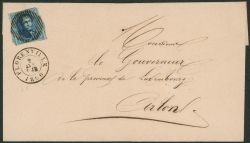 FLORENVILLE
1860
Monsieur
le Gouverneur
de la province de Luxembourg
Arlon